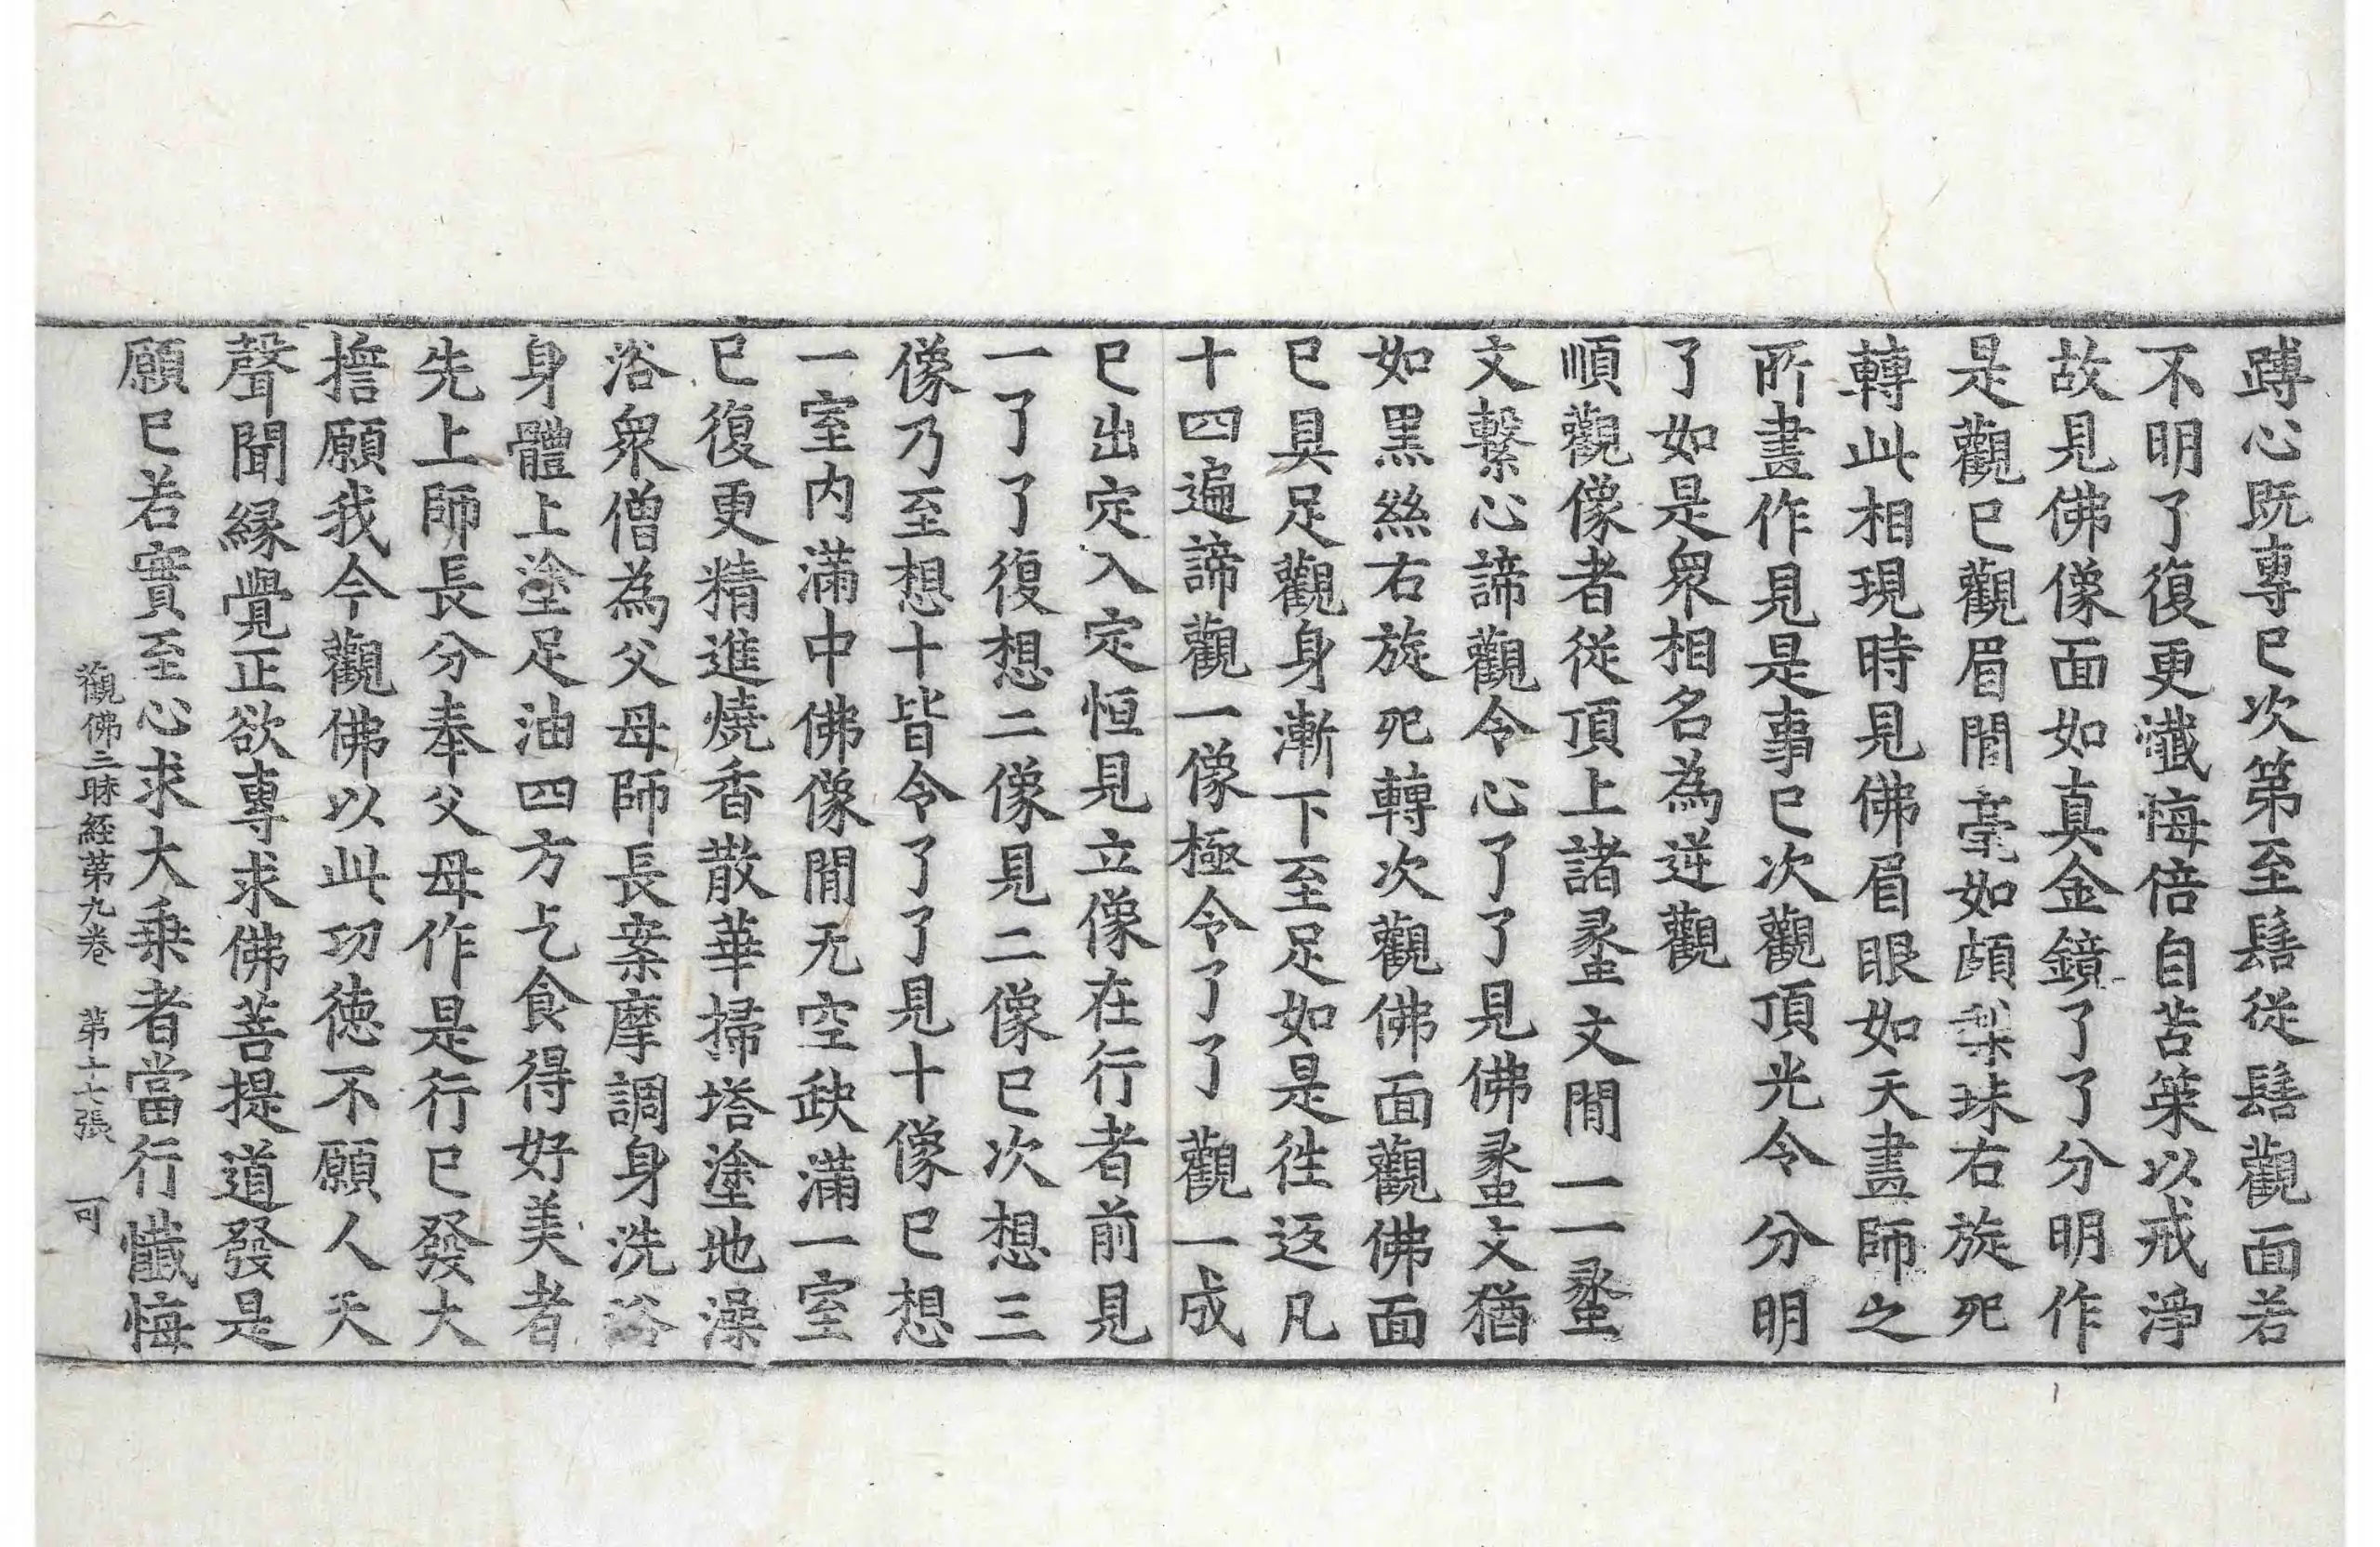 蹲心既專已次第至髻從髻觀面若
不明了復更懺悔倍自苦策以戒淨
故見佛像面如真金鏡了了分明作
是觀已觀眉間毫如頗梨珠右旋宛
轉此相現時見佛眉眼如天畫師之
所畫作見是事已次觀頂光令分明
了如是衆相名為逆觀
順觀像者從頂上諸蠡文間一一蠡
文繫心諦觀令心了了見佛蠡文猶
如黑絲右旋宛轉次觀佛面觀佛面
已具足觀身漸下至足如是往返凡
十四遍諦觀一像極令了了觀一成
已出定入定恒見立像在行者前見
一了了復想二像見二像已次想三
像乃至想十皆令了了見十像已想
一室内滿中佛像間无空缺滿一室
已復更精進燒香散華掃塔塗地澡
浴衆僧為父母師長案摩調身洗浴
身體上塗足油四方乞食得好美者
先上師長分奉父母作是行已發大
擔願我今觀佛以此功德不願人天
聲聞緣覺正欲專求佛菩提道發是
願已若實至心求大乘者當行懺悔
觀佛三昧經第九卷 第十七張 可